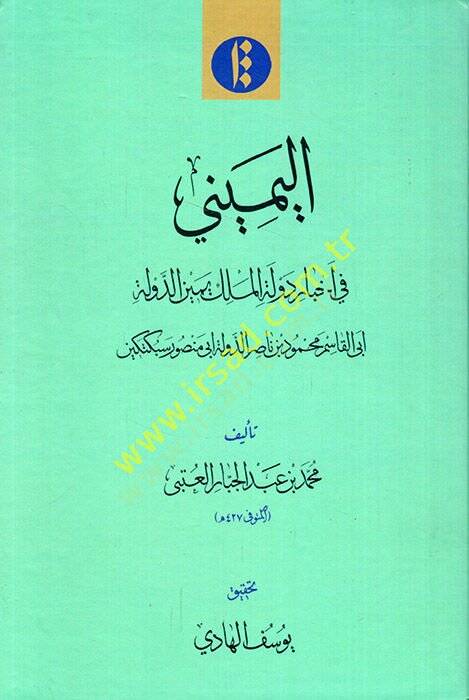 اليَمِيني
في أخبار دَولة الملك يمين الدَّولة
أبي القاسم محمود بن ناصر الدَّولة أبي منصور سبكتكين
تأليف
محمّد بن عبد الجبار العُتبي
(المتوفى ٤٢٧ هـ)
تحقيق
يوسف الهادي
www.irsad.com.tr